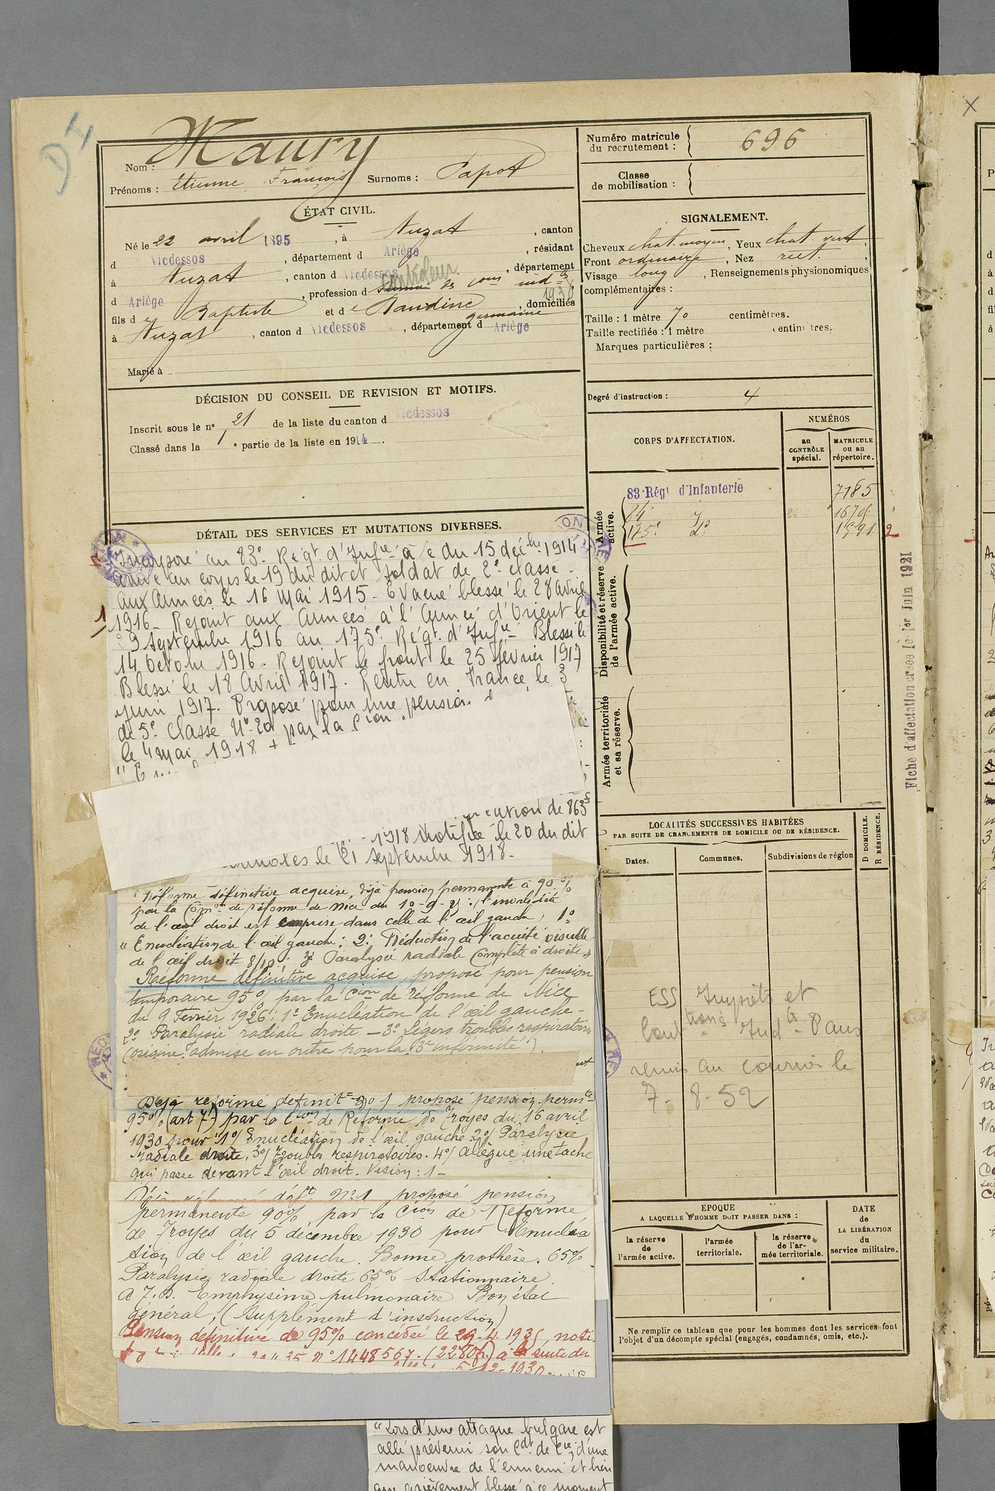 D4
Nom : Maury
Prénoms : Etienne François Surnoms : Papot
ÉTAT CIVIL.
Né le 22 avril 1895, à Auzat, canton
d Vicdessos, département d Ariège, résidant
à Auzat, canton d Vicdessos, département
d Ariège, profession d contrôleur des cons ind
1930
fils d Baptiste et d Naudine germaine, domiciliés
à Auzat, canton d Vicdessos, département d Ariège
Marié à
DÉCISION DU CONSEIL DE REVISION ET MOTIFS.
Inscrit sous le nº 21 de la liste du canton d Vicdessos
Classé dans la 1º partie de la liste en 1914.
DÉTAIL DES SERVICES ET MUTATIONS DIVERSES.
Incorporé au 83º Régt d'Infie à c du 15 décbre 1914
arrivé au corps le 19 du dit et soldat de 2e classe
aux armées le 16 Mai 1915 - Evacué blessé le 28 Avril
1916 - Rejoint aux Armées à l'Armée d'Orient le
29 Septembre 1916 au 175º Régt d'Infie - Blessé le
14 Octobre 1916 - Rejoint le front le 25 février 1917
Blessé le 18 Avril 1917. Rentré en France le 3
Juin 1917. Proposé pour une pension
de 5e classe Nº 20 par la Cion
le 4 mai 1918
de 863
1918 Notifiée le 20 du dit
le 21 septembre 1918.
Réforme définitive acquise, déjà pension permanente à 90%
par la Comon de réforme de Nice du
de l'œil droit est comprise dans celle de l'œil gauche, 1º
"Enucléation de l'œil gauche; 2º Réduction de l'acuité visuelle
de l'œil droit 8/10 3º Paralysie radiale complète à droite"
Réforme définitive acquise proposé pour pension
temporaire 95% par la Cion de réforme de Nice
du 9 Février 1926: 1º Enucléation de l'œil gauche
2º Paralysie radiale droite - 3º Légers troubles respiratoires
(origine admise en outre pour la 3e infirmité).
Déjà réformé définitt nº 1 proposé pension permte
95% (art 7) par la Cion de Réforme de Troyes du 16 avril
1930 pour 1º/ Enucléation de l'œil gauche 2º/ Paralysie
radiale droite, 3º/ troubles respiratoires. 4º/ Allègue une tache
qui passe devant l'œil droit. Vision: 1-
Déjà réformé déft Nº1 proposé pension
permanente 90% par la Cion de Réforme
de Troyes du 5 décembre 1930 pour Enucléa
tion de l'œil gauche. Bonne prothèse. 65%
Paralysie radiale droite 65% Stationnaire.
Emphysème pulmonaire Bon état
général, (supplément d'instruction)
Pension définitive de 95% concédée le 29.4.1935, noti
Nº 1448567. (2280f) à la suite du
5-12-1930
"Lors d'une attaque bulgare est
allé prévenir son Cdt de Cie d'une
manœuvre de l'ennemi et bien
que grièvement blessé à ce moment
Numéro matricule
du recrutement : 696
Classe
de mobilisation :
SIGNALEMENT.
Cheveux chat. moyen, Yeux chat. vert
Front ordinaire, Nez rect.
Visage long, Renseignements physionomiques
complémentaires :
Taille : 1 mètre 70 centimètres.
Taille rectifiée : 1 mètre centimètres.
Marques particulières :
Degré d'instruction : 4
CORPS D'AFFECTATION.
NUMÉROS
au
CONTRÔLE
spécial.
MATRICULE
ou au
répertoire.
Armée
active.
83e Régt d'Infanterie 7185
14e
175e dº 2
Disponibilité et réserve
de l'armée active.
Armée territoriale
et sa réserve.
Fiche d'affectation créée le 1er Juin 1921
LOCALITÉS SUCCESSIVES HABITÉES
PAR SUITE DE CHANGEMENTS DE DOMICILE OU DE RÉSIDENCE.
D DOMICILE.
R RÉSIDENCE.
Dates.
Communes.
Subdivisions de région
ESS Impôts et
Conttions Indtes Paris
remis au courrier le
7-8-52
ÉPOQUE
A LAQUELLE L'HOMME DOIT PASSER DANS :
la réserve
de
l'armée active.
l'armée
territoriale.
la réserve
de l'ar-
mée territoriale.
DATE
de
LA LIBÉRATION
du
service militaire.
Ne remplir ce tableau que pour les hommes dont les services font
l'objet d'un décompte spécial (engagés, condamnés, omis, etc.).